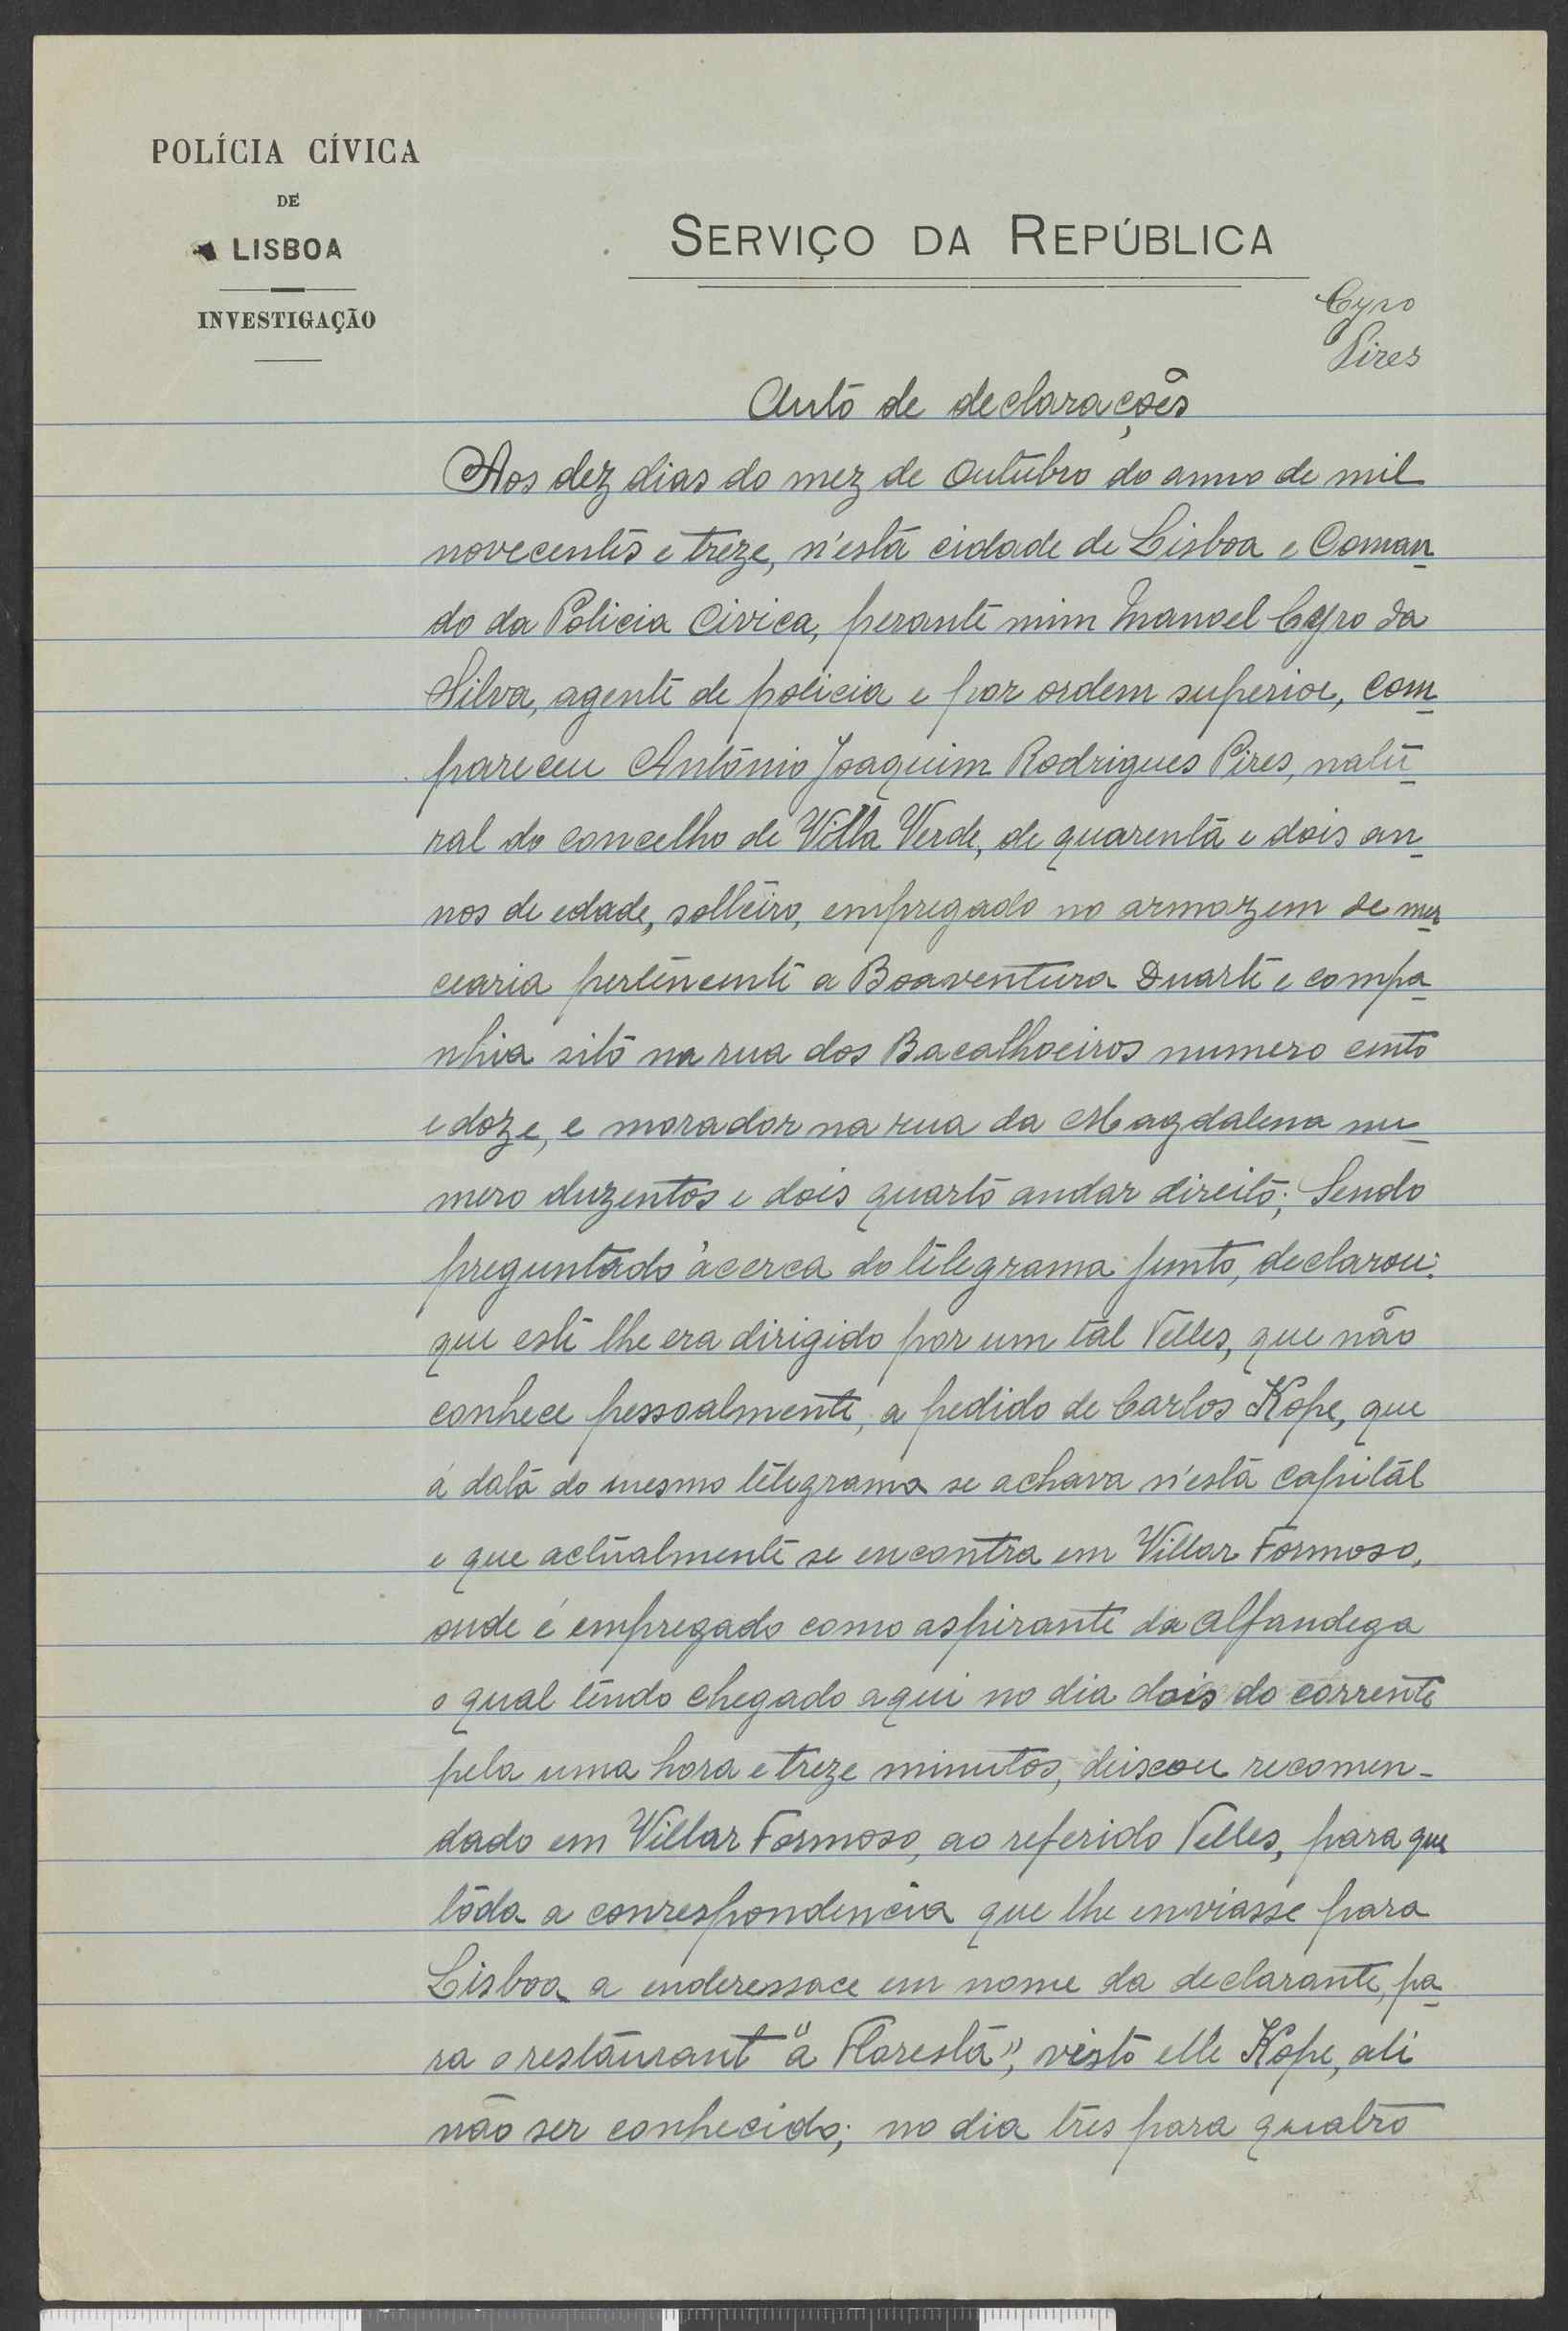 POLÍCIA CÍVICA
DE
LISBOA
INVESTIGAÇÃO
SERVIÇO DA REPÚBLICA
Cyro
Pires
Auto de declarações
Aos dez dias do mez de Outubro do anno de mil
novecentos e treze, n'esta cidade de Lisboa e Coman-
do da Policia Civica, perante mim Manoel Cyro da
Silva, agente de policia e por ordem superior, com-
pareceu António Joaquim Rodrigues Pires, natu-
ral do concelho de Villa Verde, de quarenta e dois an-
nos de edade, solteiro, empregado no armazem de mer-
cearia pertencente a Boaventura Duarte e compa-
nhia sito na rua dos Bacalhoeiros numero cento
e doze, e morador na rua da Magdalena nu-
mero duzentos e dois quarto andar direito; Sendo
preguntado àcerca do telegrama junto, declarou:
que este lhe era dirigido por um tal Telles, que não
conhece pessoalmente, a pedido de Carlos Kope, que
á data do mesmo telegrama se achava n'esta Capital
e que actualmente se encontra em Villar Formoso,
onde é empregado como aspirante da alfandega
o qual tendo chegado aqui no dia dois do corrente
pela uma hora e treze minutos, deixou recomen-
dado em Villar Formoso, ao referido Telles, para que
toda a correspondencia que lhe enviasse para
Lisboa a enderessace em nome da declarante, pa-
ra o restaurant "a Floresta", visto elle Kope, ali
não ser conhecido; no dia tres para quatro